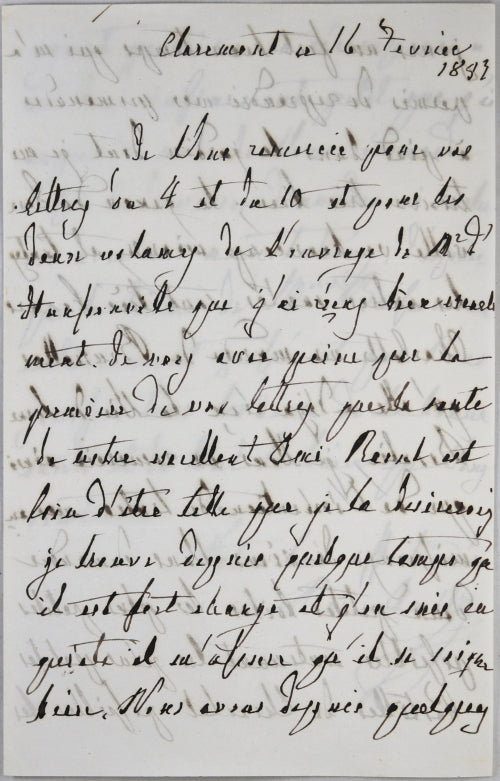 Claremont ce 16 Fevrier
1883
Je Vous remercie pour vos
lettres du 4 et du 10 et pour les
deux volumes de l'ouvrage de Mr d'
Haussonville que j'ai reçus bien exacte
ment. Je vois avec peine par la
premiere de vos lettres que la sante
de notre excellent ami est
loin d'être telle que je la desirerois
je trouve depuis quelque temps qu'
il est fort changé et j'en suis in
quiete il m'assure qu'il se soigne
bien. Nous avons depuis quelques